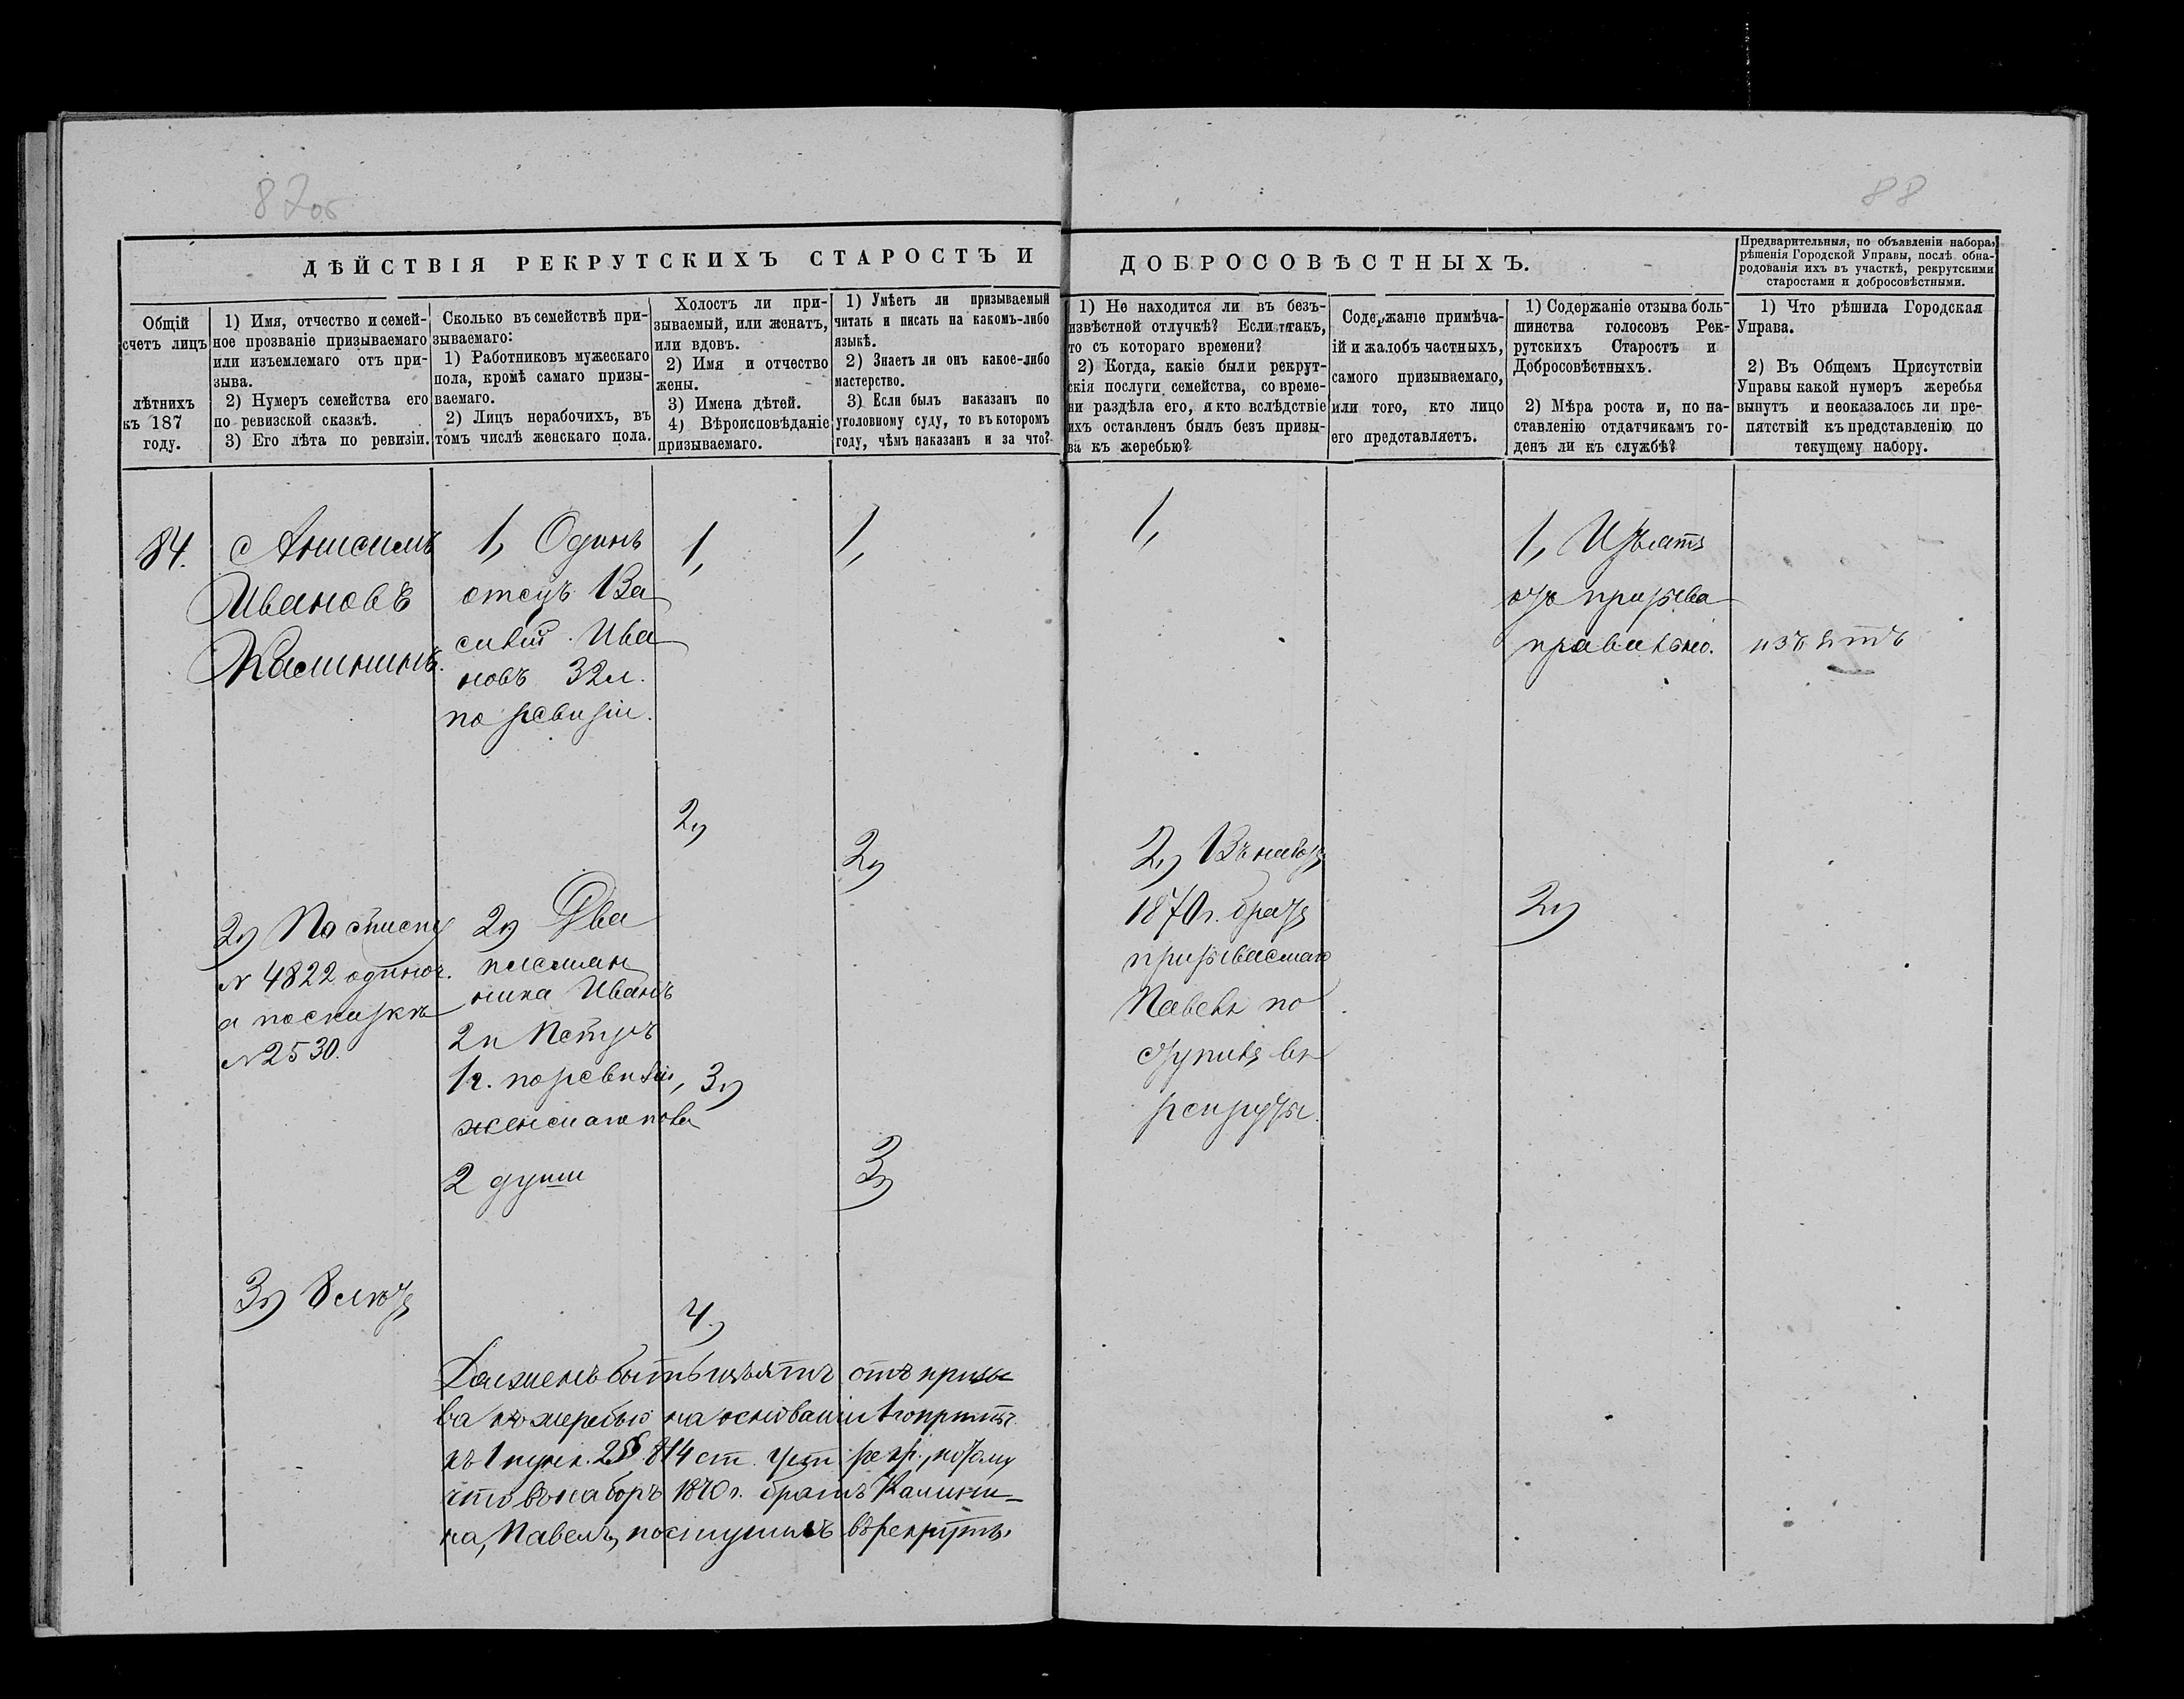 87об
88
ДѢЙСТВІЯ РЕКРУТСКИХЪ СТАРОСТЪ И
ДОБРОСОВѢСТНЫХЪ.
Предварительныя, по объявленіи набора,
рѣшенія Городской Управы, послѣ обна-
родованія ихъ въ участкѣ, рекрутскими
старостами и добросовѣстными.
Общій
счетъ лицъ
лѣтнихъ
къ 187
году.
1) Имя, отчество и семей-
ное прозваніе призываемаго
или изъемлемаго отъ при-
зыва.
2) Нумеръ семейства его
по ревизской сказкѣ.
3) Его лѣта по ревизіи.
Сколько въ семействѣ при-
зываемаго:
1) Работниковъ мужескаго
пола, кромѣ самаго призы-
ваемаго.
2) Лицъ нерабочихъ, въ
томъ числѣ женскаго пола.
Холостъ ли при-
зываемый, или женатъ,
или вдовъ.
2) Имя и отчество
жены.
3) Имена дѣтей.
4) Вѣроисповѣданіе
призываемаго.
1) Умѣетъ ли призываемый
читать и писать на какомъ-либо
языкѣ.
2) Знаетъ ли онъ какое-либо
мастерство.
3) Если былъ наказанъ по
уголовному суду, то въ которомъ
году, чѣмъ наказанъ и за что?
1) Не находится ли въ безъ-
извѣстной отлучкѣ? Если такъ,
то съ котораго времени?
2) Когда, какіе были рекрут-
скія послуги семейства, со време-
ни раздѣла его, и кто вслѣдствіе
ихъ оставленъ былъ безъ призы-
ва къ жеребью?
Содержаніе примѣча-
ій и жалобъ частныхъ,
самого призываемаго,
или того, кто лицо
его представляетъ.
1) Содержаніе отзыва боль-
шинства голосовъ Рек-
рутскихъ Старостъ и
Добросовѣстныхъ.
2) Мѣра роста и, по на-
ставленію отдатчикамъ го-
денъ ли къ службѣ?
1) Что рѣшила Городская
Управа.
2) Въ Общемъ Присутствіи
Управы какой нумеръ жеребья
вынутъ и неоказалось ли пре-
пятствій къ представленію по
текущему набору.
84.
Анисимъ
Ивановъ
Калининъ.
2) По списку
N 4822 одиноч.
а по сказкѣ
N 2530.
3) 8 лѣтъ
1, Одинъ
отецъ Ва
силій Ива
новъ 32 л.
по ревизіи.
2) Два
племян
ника Иванъ
2 и Петръ
1 г. по ревизіи,
женскаго пола
2 души
1,
2)
3)
4.)
1,
2)
3)
Долженъ быть изъятъ отъ призы
ва къ жеребью на основаніи 1го примѣч.
къ 1 пункт. 2 § 814 ст. Уст. рекр., потому
что въ наборъ 1870 г. братъ Калини-
на, Павелъ, поступилъ въ рекруты.
1,
2) Въ наборъ
1870 г. братъ
призываемаго
Павелъ по
ступилъ въ
рекруты.
1, Изъятъ
отъ призыва
правильно.
2)
изъятъ